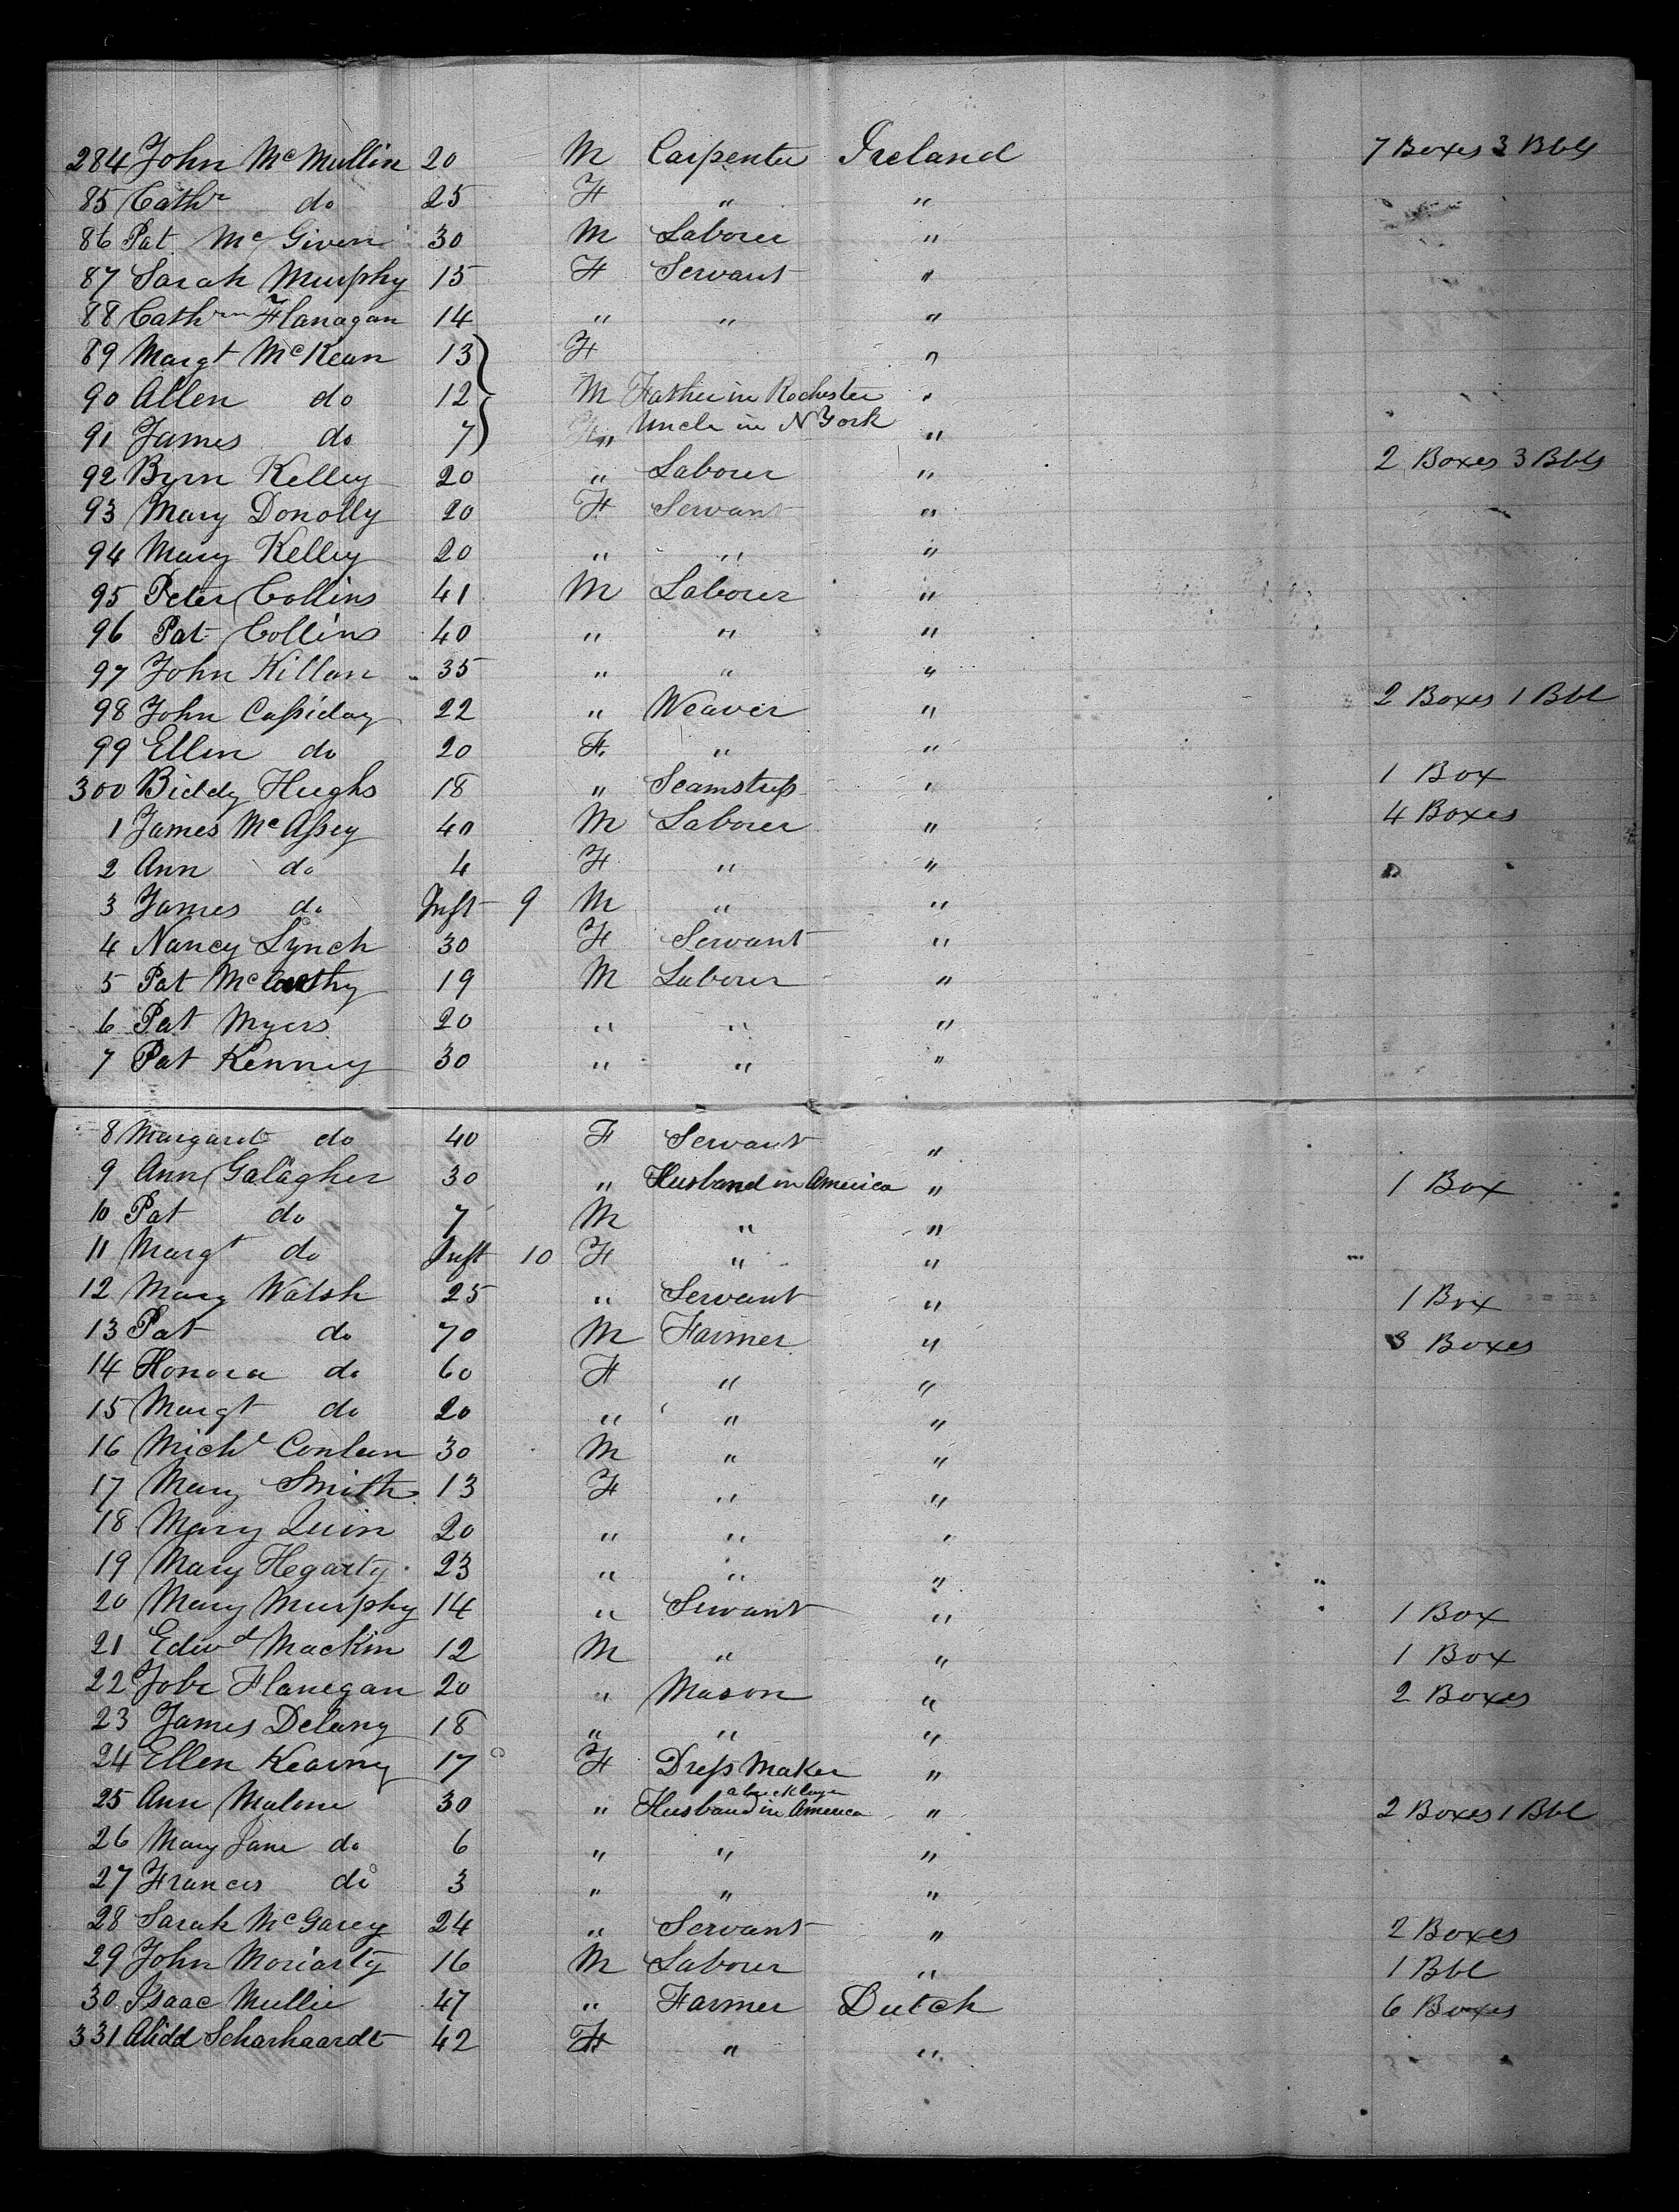 284 John McMullin 20 M Carpenter Ireland 7 Boxes 3 Bbls
85 Cathr do 25 F " "
86 Pat McGiven 30 M Laborer "
87 Sarah Murphy 15 F Servant "
88 Cathrn Flanagan 14 " " "
89 Margt McKean 13 F "
90 Allen do 12 M Father in Rochester "
91 James do 7 " Uncle in N York "
92 Byrn Kelley 20 " Laborer " 2 Boxes 3 Bbls
93 Mary Donolly 20 F Servant "
94 Mary Kelley 20 " " "
95 Peter Collins 41 M Laborer "
96 Pat Collins 40 " " "
97 John Killan 35 " " "
98 John Cassiday 22 " Weaver " 2 Boxes 1 Bbl
99 Ellen do 20 F " "
300 Biddy Hughs 18 " Seamstress " 1 Box
1 James McAssey 40 M Laborer " 4 Boxes
2 Ann do 4 F " "
3 James do Inft 9 M " "
4 Nancy Lynch 30 F Servant "
5 Pat McCarthy 19 M Laborer "
6 Pat Myers 20 " " "
7 Pat Kenney 30 " " "
8 Margaret do 40 F Servant "
9 Ann Galagher 30 " Husband in America " 1 Box
10 Pat do 7 M " "
11 Margt do Inft 10 F " "
12 Mary Walsh 25 " Servant " 1 Box
13 Pat do 70 M Farmer " 3 Boxes
14 Honora do 60 F " "
15 Margt do 20 " " "
16 Michl Conlan 30 M " "
17 Mary Smith 13 F " "
18 Mary Quin 20 " " "
19 Mary Hegarty 23 " " "
20 Mary Murphy 14 " Servant " 1 Box
21 Edwd Mackin 12 M " " 1 Box
22 Jobe Flanegan 20 " Mason " 2 Boxes
23 James Delany 18 " " "
24 Ellen Kearny 17 F Dress Maker "
25 Ann Malone 30 " Husband a bricklayer in America " 2 Boxes 1 Bbl
26 Mary Jane do 6 " " "
27 Frances do 3 " " "
28 Sarah McGarey 24 " Servant " 2 Boxes
29 John Moriarty 16 M Laborer " 1 Bbl
30 Isaac Mullie 47 " Farmer Dutch 6 Boxes
331 Alida Scharhaardt 42 F " "